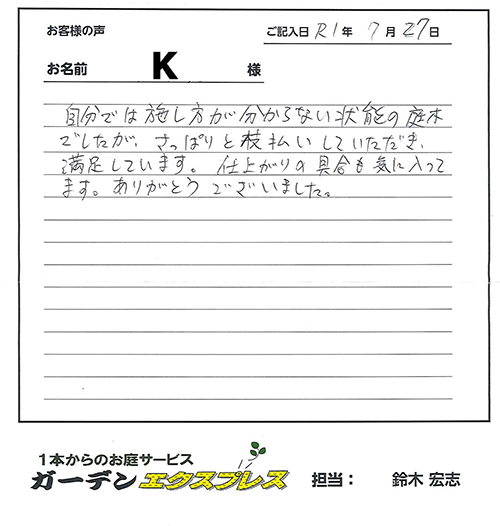 お客様の声
ご記入日 R1年 7月 27日
お名前 K 様
自分では施し方が分からない状態の庭木
でしたが、さっぱりと枝払いしていただき、
満足しています。仕上がりの具合も気に入って
ます。ありがとうございました。
1本からのお庭サービス
ガーデンエクスプレス 担当： 鈴木 宏志